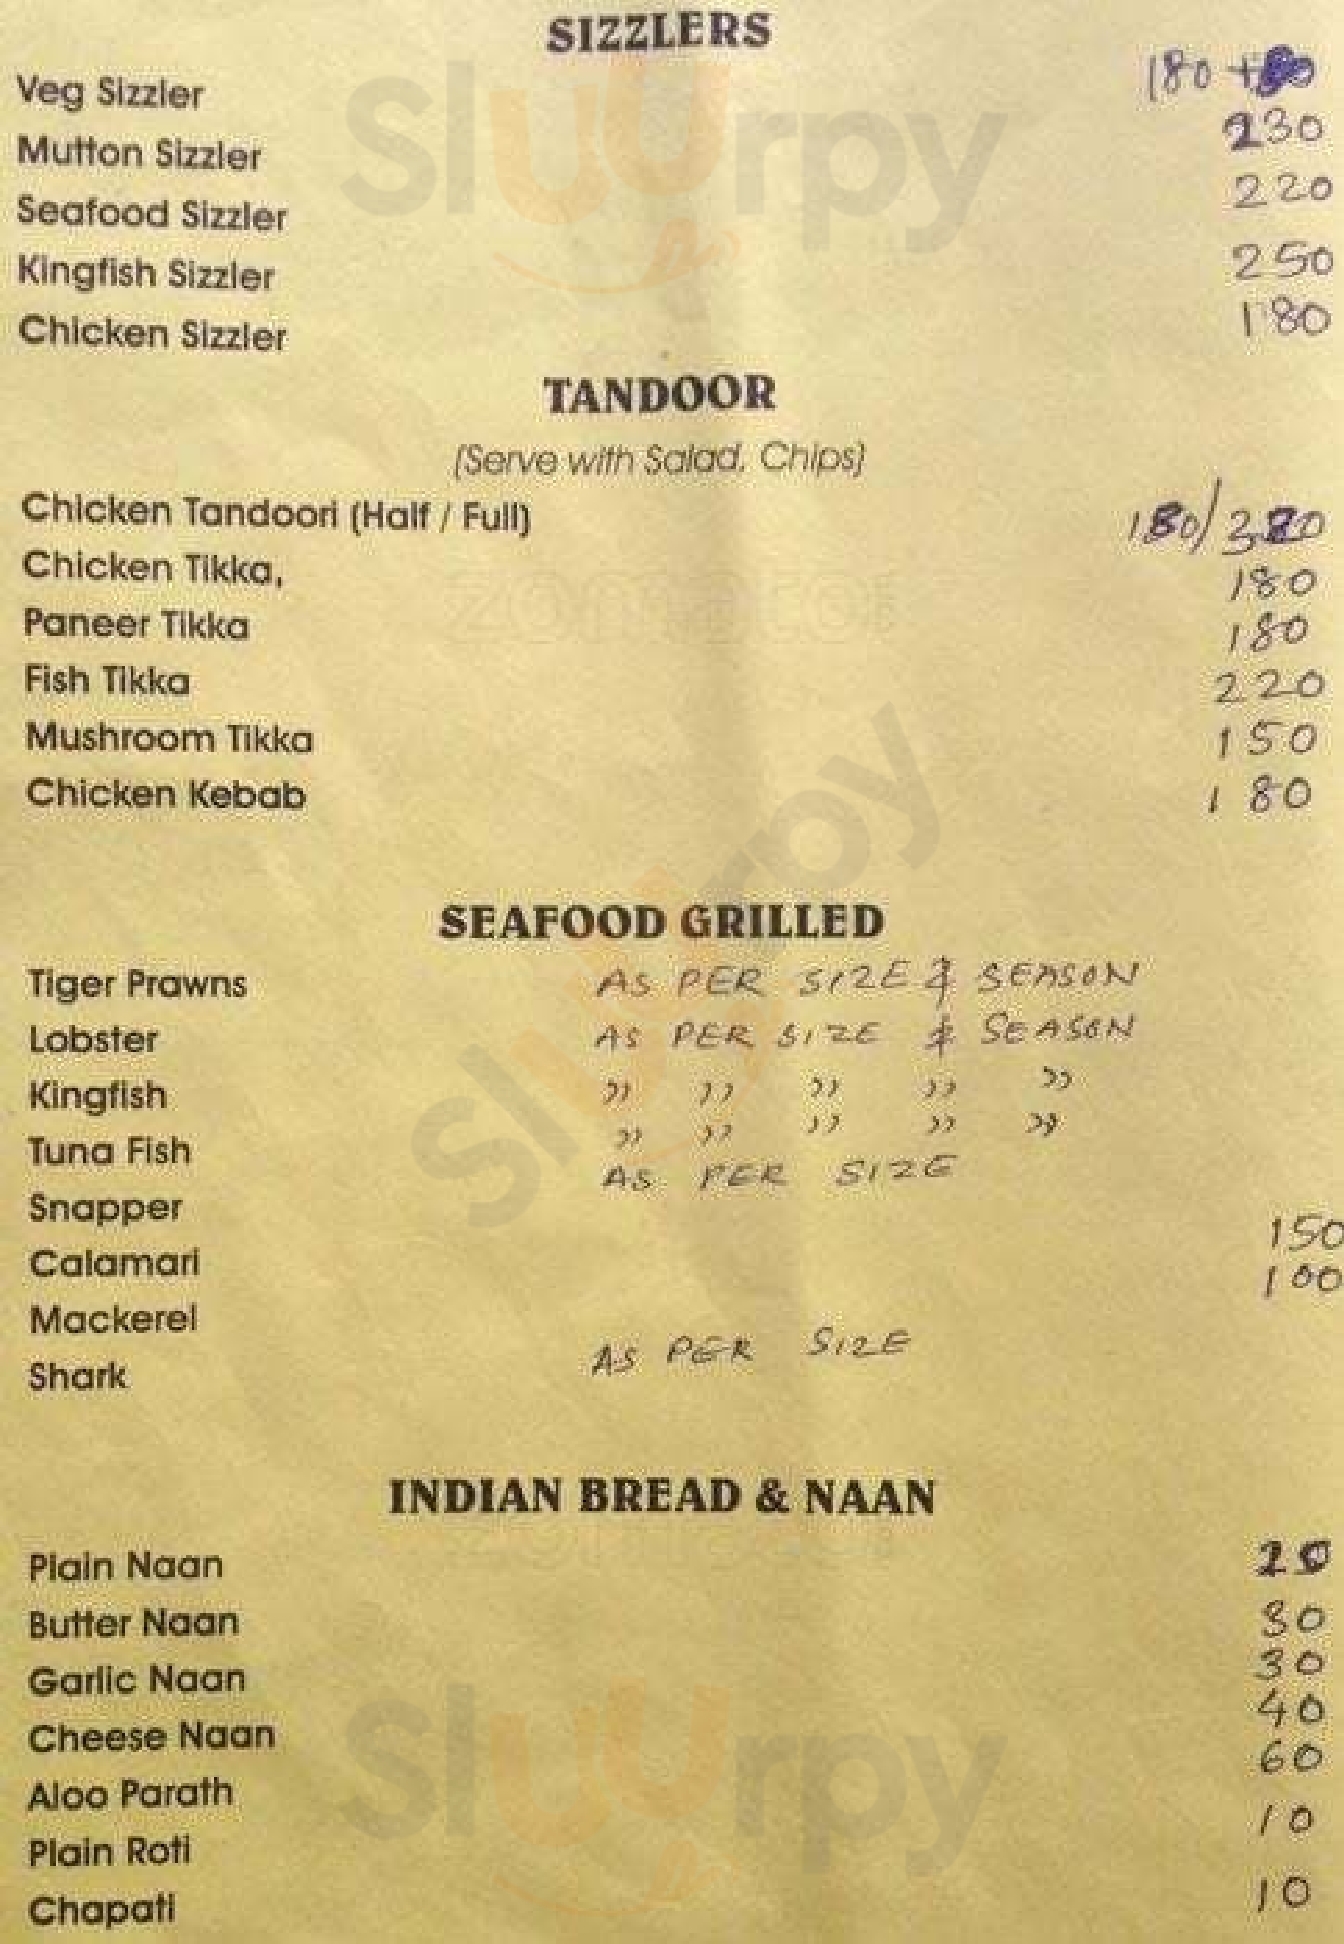 SIZZLERS
Veg Sizzler 180
Mutton Sizzler 230
Seafood Sizzler 220
Kingfish Sizzler 250
Chicken Sizzler 180
TANDOOR
(Serve with Salad, Chips)
Chicken Tandoori (Half / Full)
Chicken Tikka, 180
Paneer Tikka 180
Fish Tikka 220
Mushroom Tikka 150
Chicken Kebab 180
SEAFOOD GRILLED
Tiger Prawns AS PER SIZE & SEASON
Lobster AS PER SIZE & SEASON
Kingfish " " " " "
Tuna Fish " " " " "
Snapper AS PER SIZE
Calamari 150
Mackerel 100
Shark AS PER SIZE
INDIAN BREAD & NAAN
Plain Naan 20
Butter Naan 30
Garlic Naan 30
Cheese Naan 40
Aloo Parath 60
Plain Roti 10
Chapati 10
Sluurpy
Sluurpy
Sluurpy